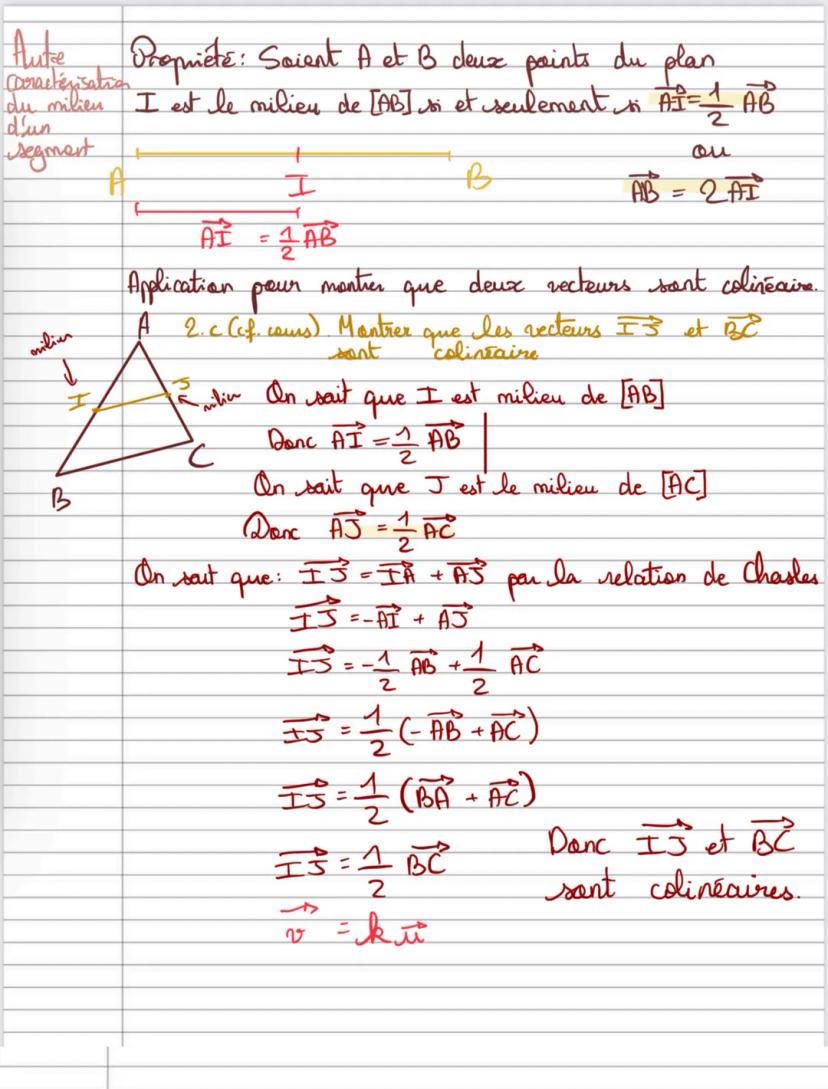 Autre
caractérisation
du milieu
d'un
segment
Propriété: Soient A et B deux points du plan
I est le milieu de [AB] si et seulement si AI→ = 1/2 AB→
ou
AB→ = 2 AI→
A I B
AI→ = 1/2 AB→
Application pour montrer que deux vecteurs sont colinéaire.
2.c (cf. cours). Montrer que les vecteurs IJ→ et BC→
sont colinéaire
A
milieu
I J
milieu
C
B
On sait que I est milieu de [AB]
Donc AI→ = 1/2 AB→
On sait que J est le milieu de [AC]
Donc AJ→ = 1/2 AC→
On sait que: IJ→ = IA→ + AJ→ par la relation de Chasles
IJ→ = -AI→ + AJ→
IJ→ = -1/2 AB→ + 1/2 AC→
IJ→ = 1/2 (-AB→ + AC→)
IJ→ = 1/2 (BA→ + AC→)
IJ→ = 1/2 BC→
Donc IJ→ et BC→
sont colinéaires.
v→ = k u→